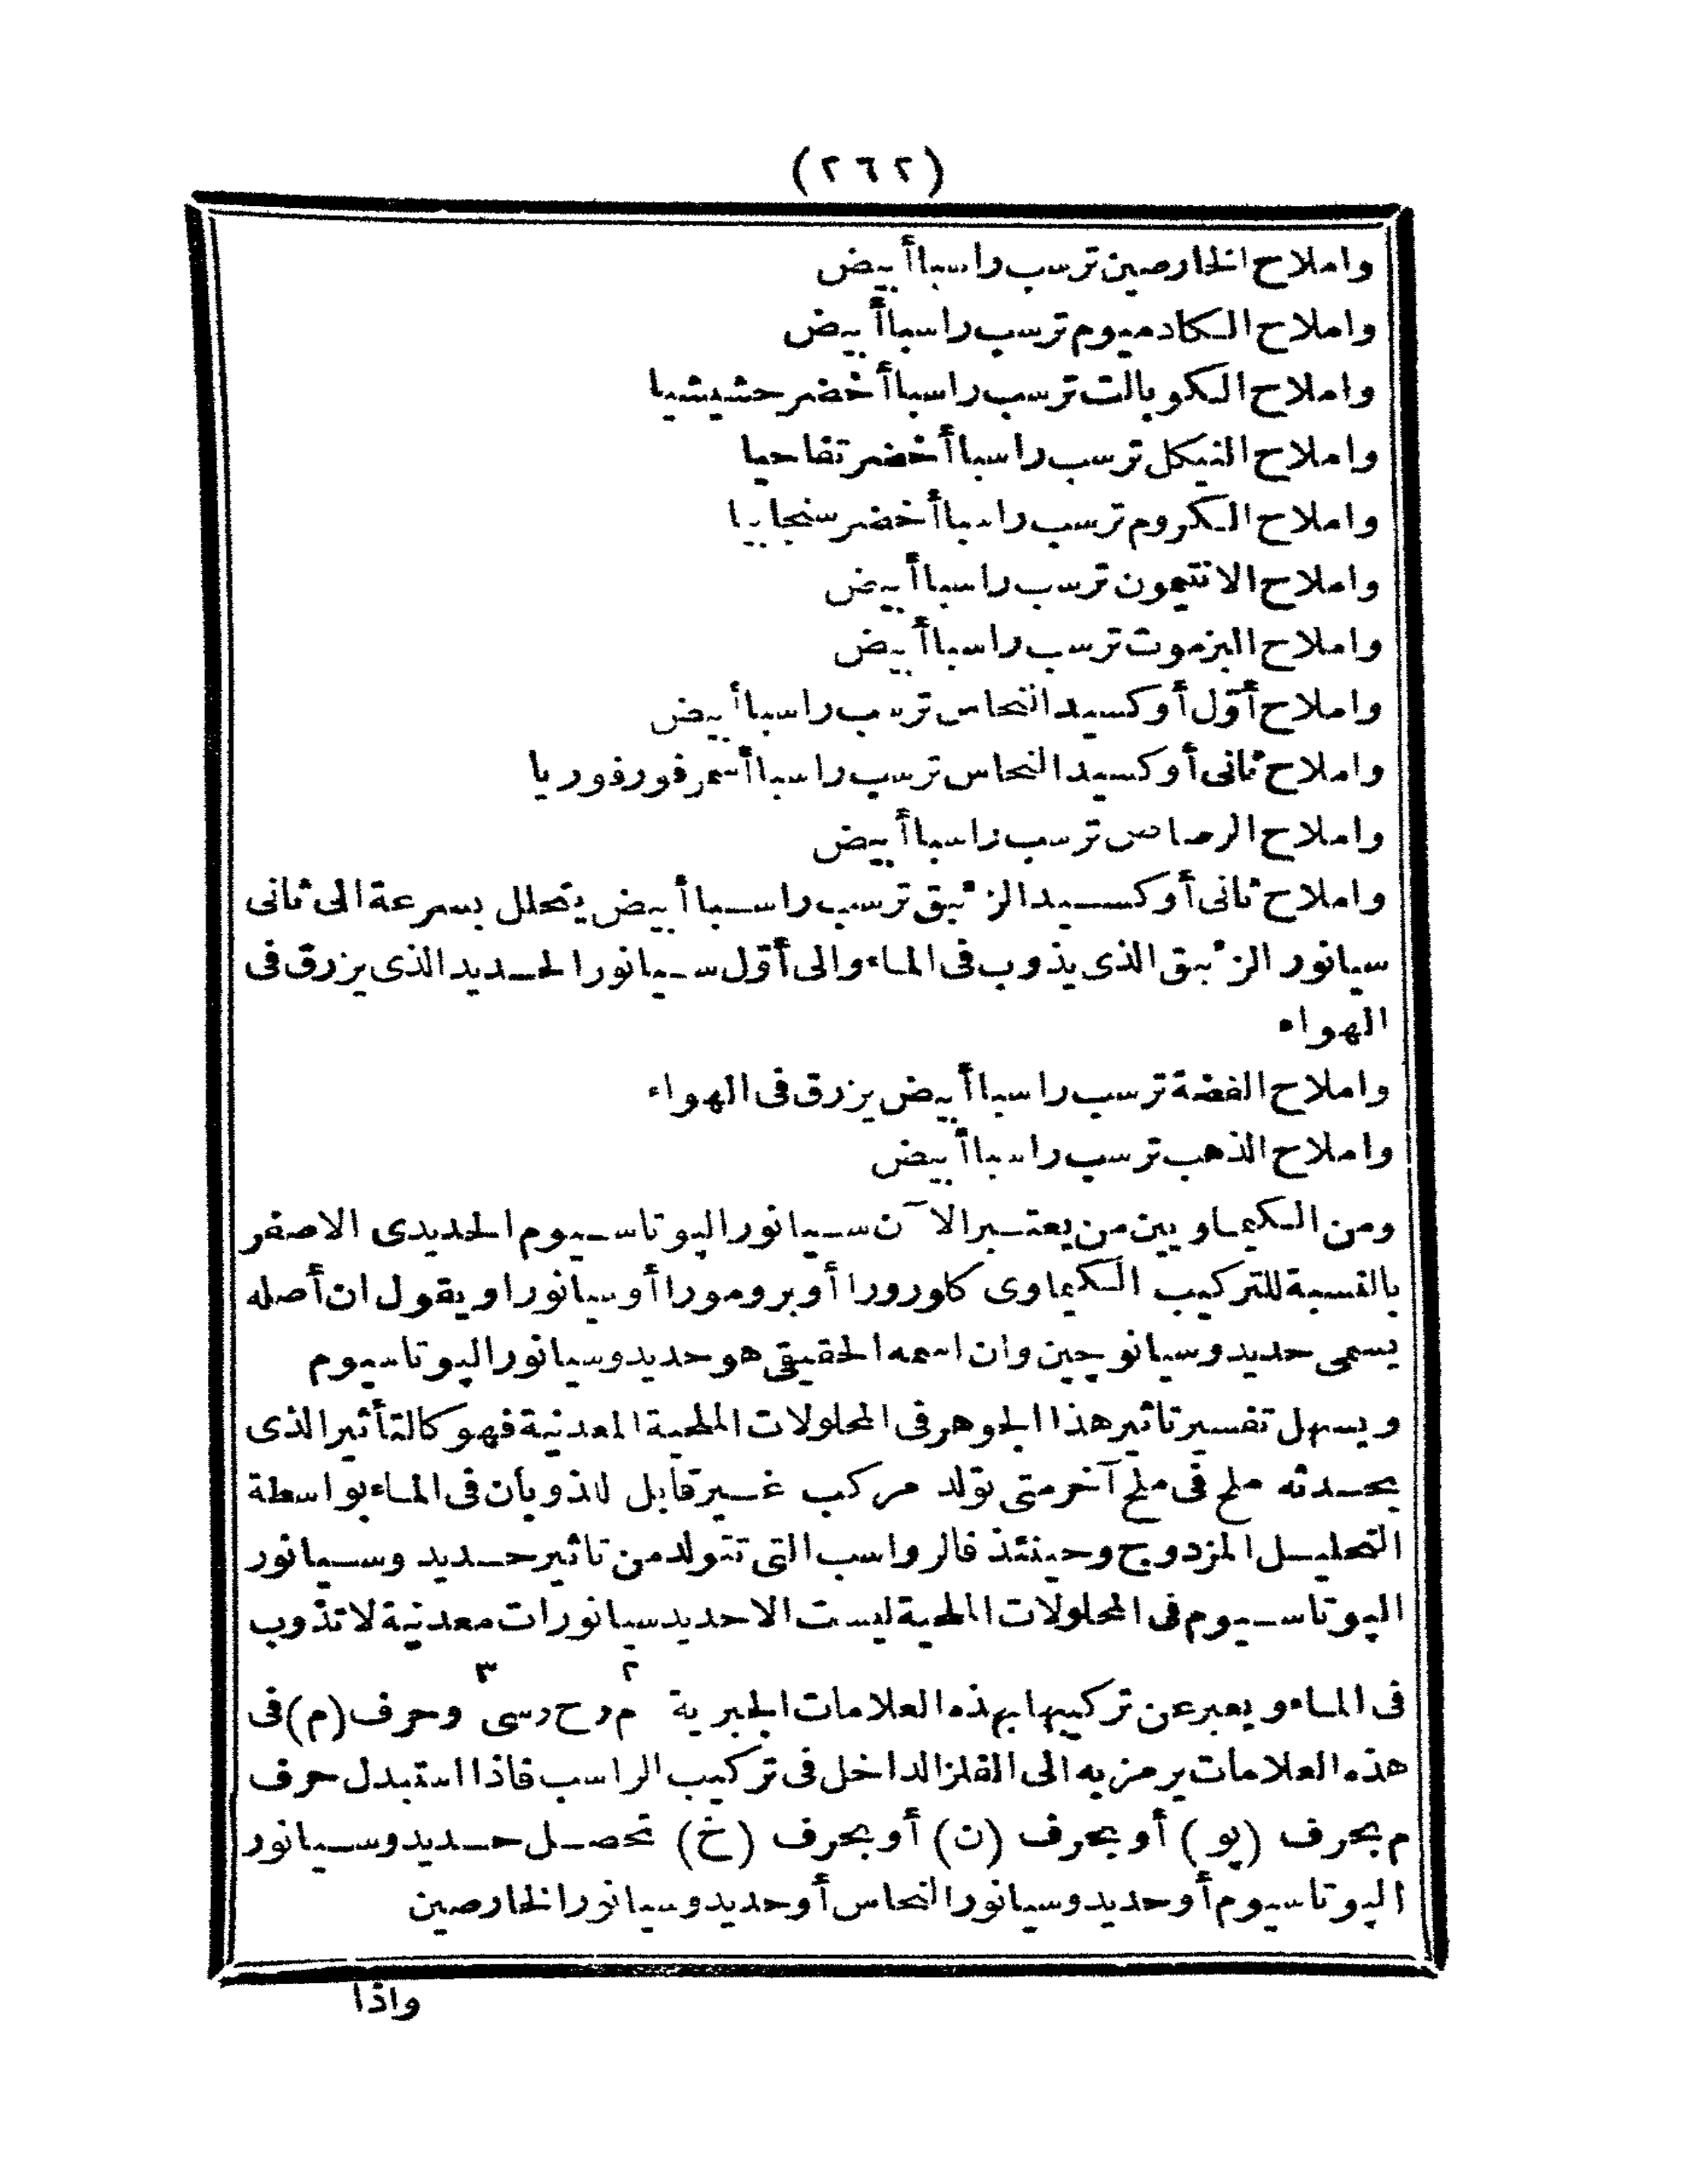 (٢٦٢)
واملاح الخارصين ترسب راسبا أبيض
واملاح الكادميوم ترسب راسبا أبيض
واملاح الكوبالت ترسب راسبا أخضر حشيشيا
واملاح النيكل ترسب راسبا أخضر تفاحيا
واملاح الكروم ترسب راسبا أخضر سنجابيا
واملاح الانتيمون ترسب راسبا أبيض
واملاح البزموت ترسب راسبا أبيض
واملاح أوّل أوكسيد النحاس ترسب راسبا أبيض
واملاح ثانى أوكسيد النحاس ترسب راسبا أسمر فورفوريا
واملاح الرصاص ترسب راسبا أبيض
واملاح ثانى أوكسيد الزئبق ترسب راسبا أبيض يتحلل بسرعة الى ثانى
سيانور الزئبق الذى يذوب فى الماء والى أوّل سيانور الحديد الذى يزرق فى
الهواء
واملاح الفضة ترسب راسبا أبيض يزرق فى الهواء
واملاح الذهب ترسب راسبا أبيض
ومن الكيماويين من يعتبر الآن سيانور البوتاسيوم الحديدى الاصفر
بالنسبة للتركيب الكيماوى كلورورا أوبرومورا أوسيانورا ويقول ان أصله
يسمى حديدوسيانوچين وان اسمه الحقيقى هو حديدوسيانور البوتاسيوم
ويسهل تفسير تاثير هذا الجوهر فى المحلولات الملحية المعدنية فهو كالتأثير الذى
يحدثه ملح فى ملح آخر متى تولد مركب غير قابل للذوبان فى الماء بواسطة
التحليل المزدوج وحينئذ فالرواسب التى تتولد من تاثير حديد وسيانور
البوتاسيوم فى المحلولات الملحية ليست الاحديد سيانورات معدنية لا تذوب
فى الماء ويعبر عن تركيبها بهذه العلامات الجبرية م٢ وح وسى٣ وحرف (م) فى
هذه العلامات يرمز به الى الفلز الداخل فى تركيب الراسب فاذا استبدل حرف
م بحرف (پو) أو بحرف (ن) أو بحرف (خ) تحصل حديدوسيانور
البوتاسيوم أوحديدوسيانور النحاس أوحديدوسيانور الخارصين
واذا